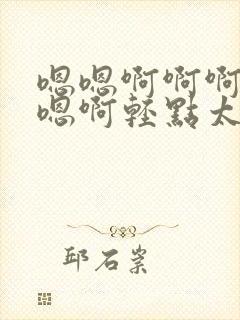 嗯嗯啊啊啊
嗯啊轻點太
邱石岽